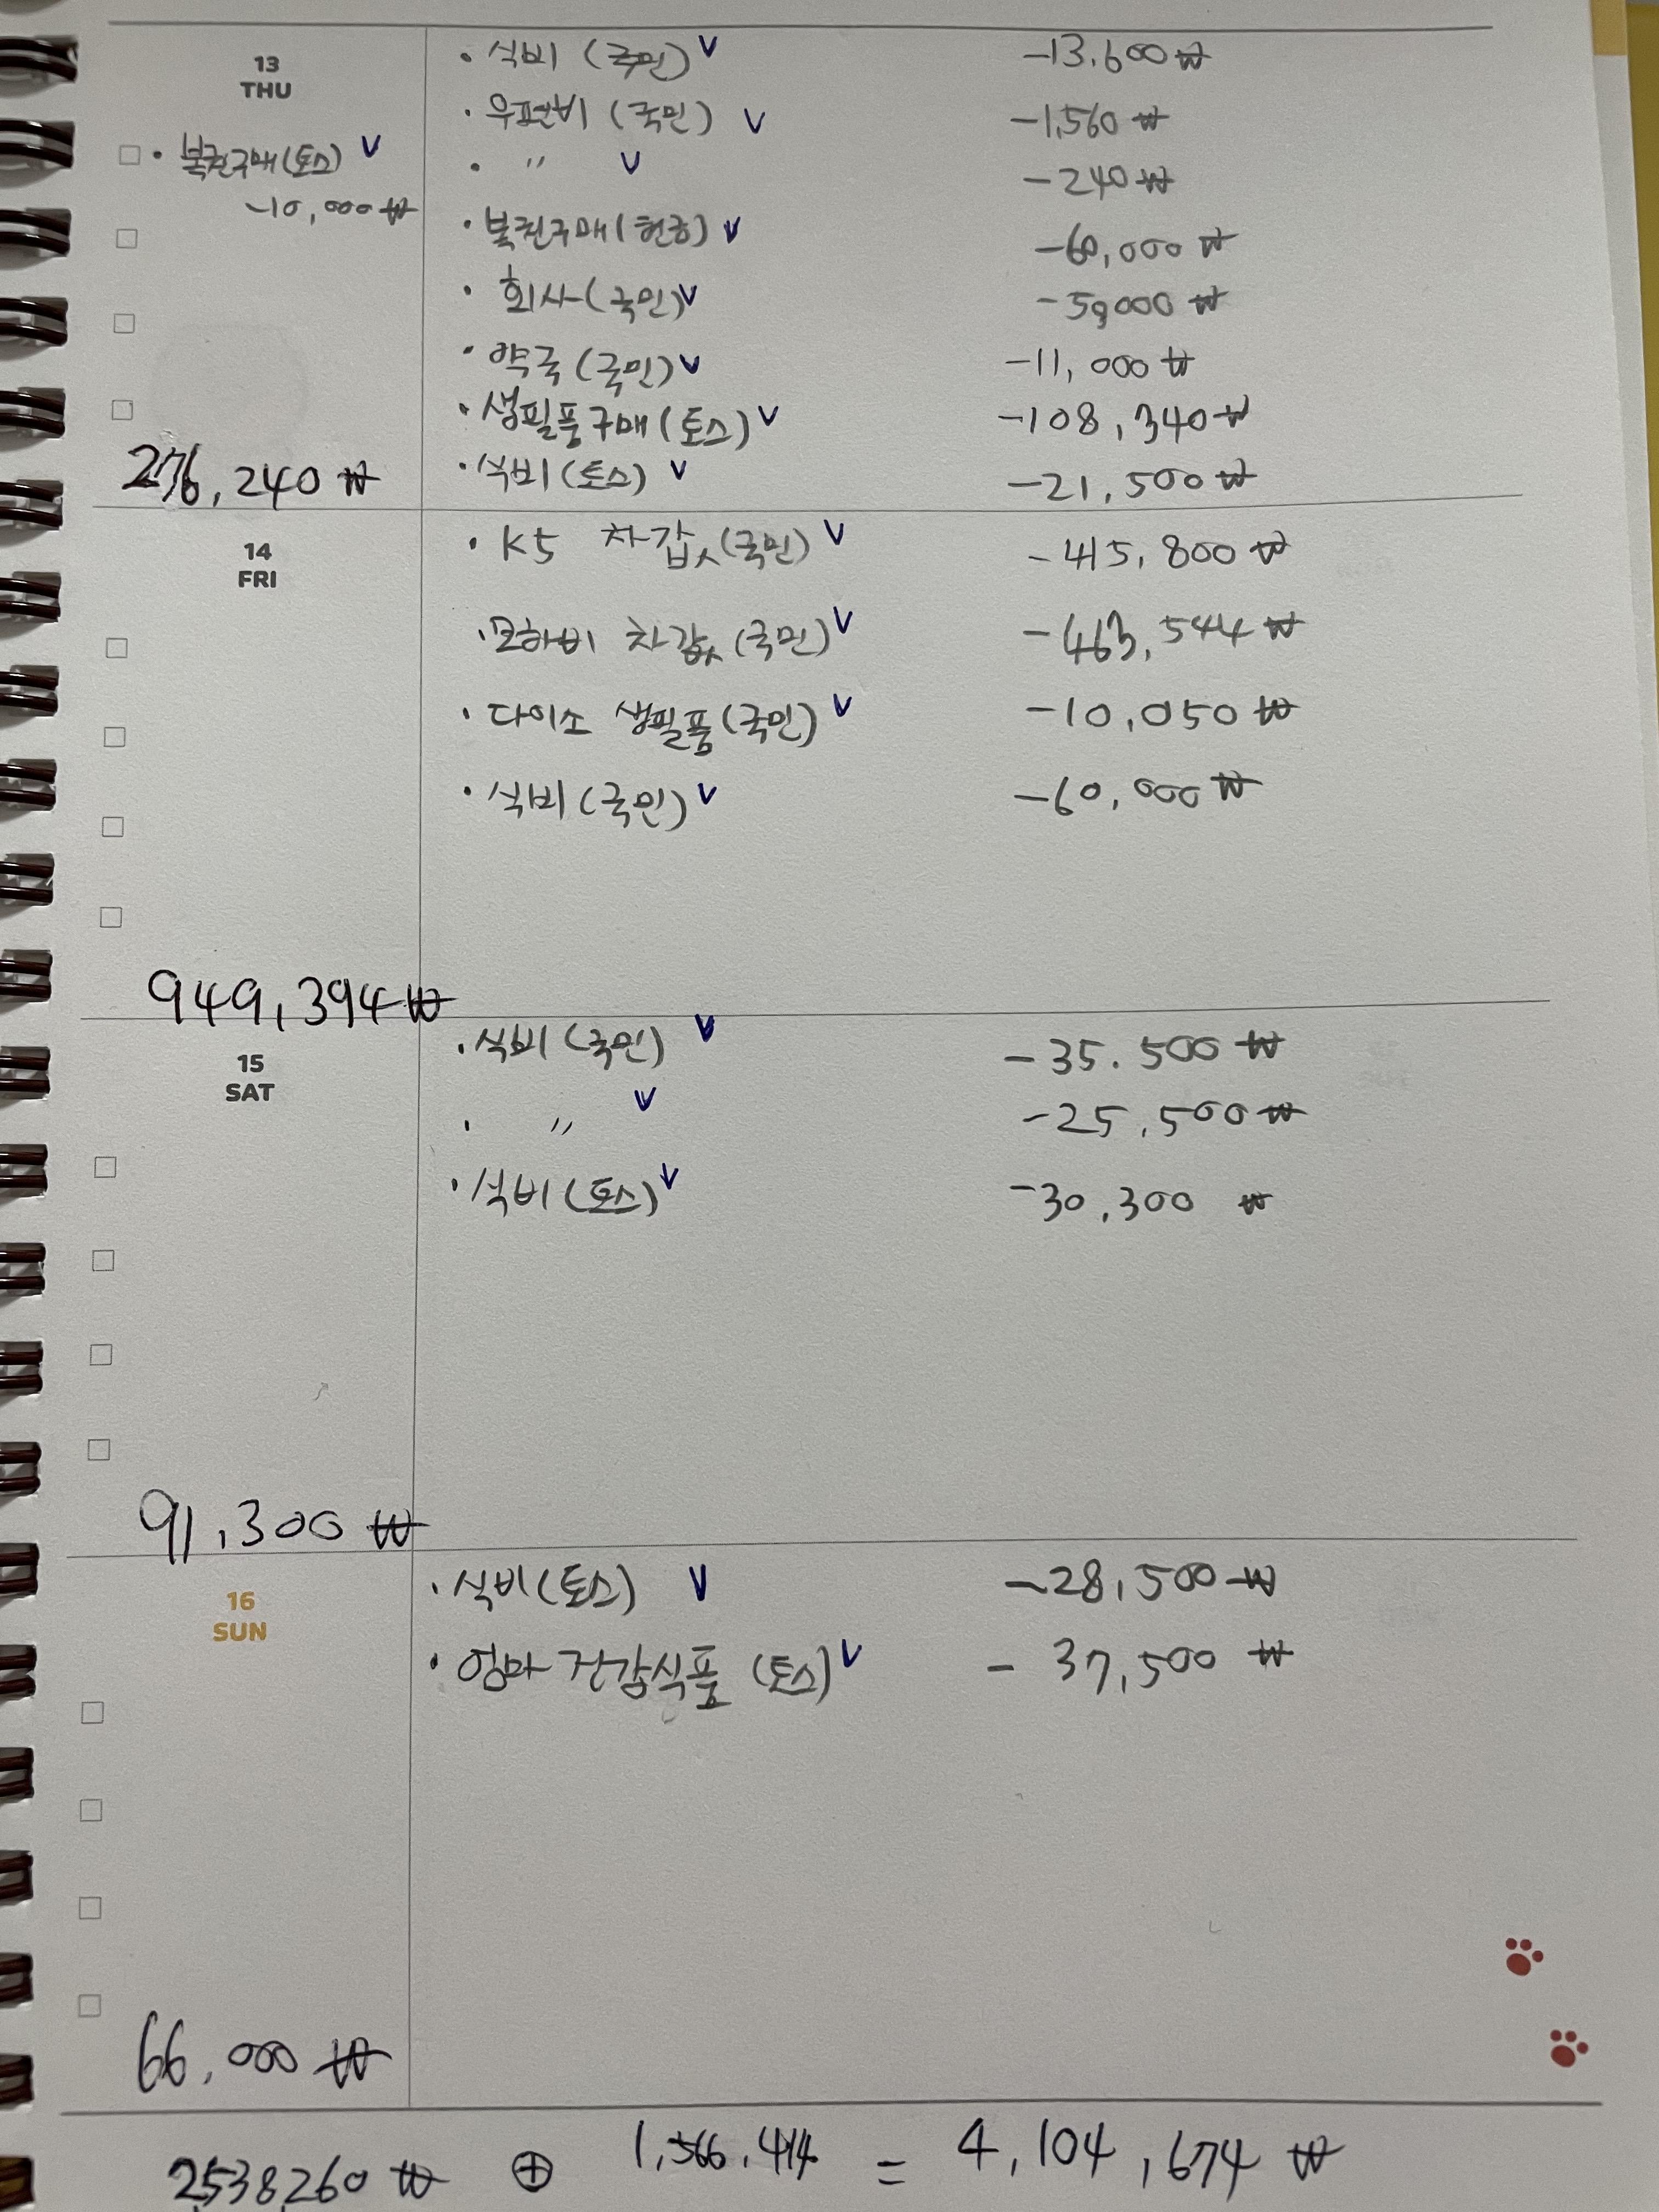 13
THU
· 복권구매(토스) V
-10,000₩
276,240₩
· 식비 (국민) V -13,600₩
· 우편비 (국민) V -1,560₩
· 〃 V -240₩
· 복권구매(현금) V -60,000₩
· 회사(국민) V -50,000₩
· 약국(국민) V -11,000₩
· 생필품구매(토스) V -108,340₩
· 식비(토스) V -21,500₩
14
FRI
949,394₩
· K5 차값(국민) V -415,800₩
· 모하비 차값(국민) V -463,544₩
· 다이소 생필품(국민) V -10,050₩
· 식비(국민) V -60,000₩
15
SAT
91,300₩
· 식비(국민) V -35.500₩
· 〃 V -25,500₩
· 식비(토스) V -30,300 ₩
16
SUN
66,000₩
· 식비(토스) V -28,500₩
· 엄마 건강식품 (토스) V - 37,500 ₩
2,538,260₩ ⊕ 1,566,414 = 4,104,674₩